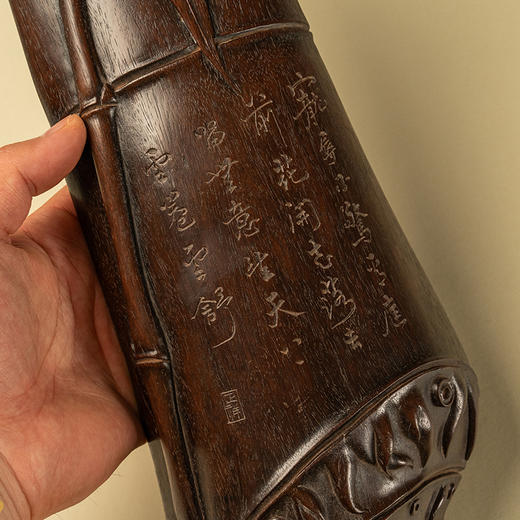 寵辱不驚看庭
前花開花落去
留無意望天上
雲卷雲舒